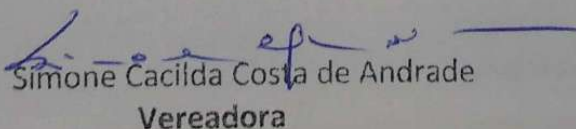 Simone Cacilda Costa de Andrade
Vereadora